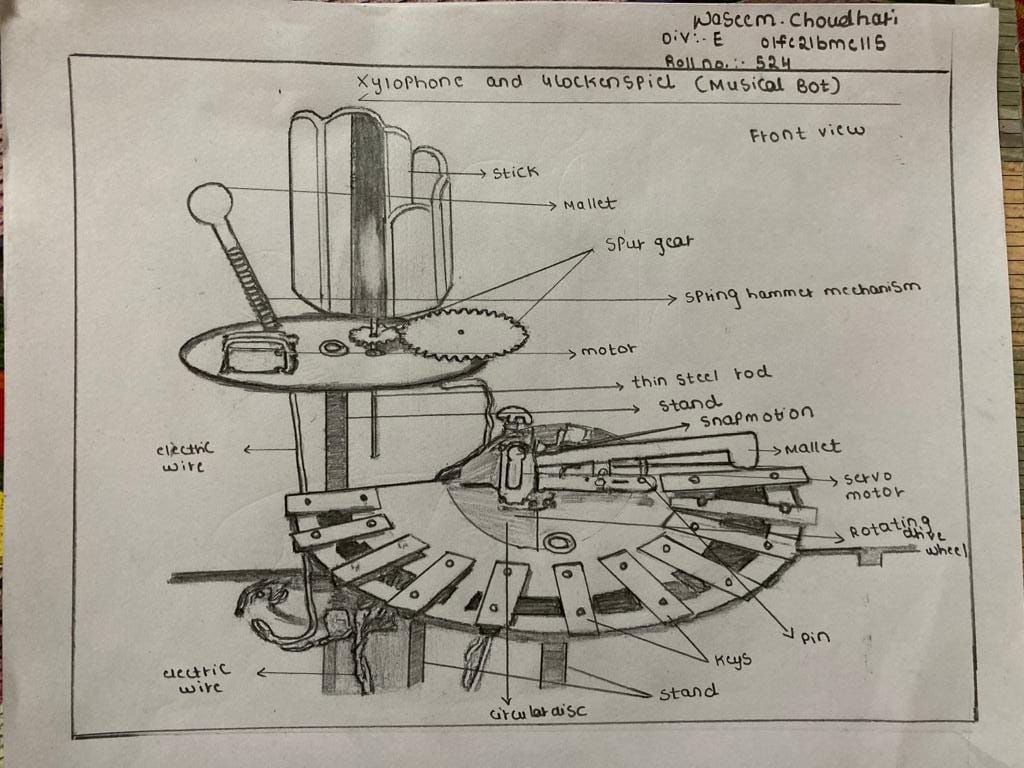 Waseem. Choudhari
Div:- E 01fe21bme115
Roll no.:- 524
Xylophone and Glockenspiel (Musical Bot)
Front view
stick
Mallet
Spur gear
Spring hammer mechanism
motor
thin steel rod
stand
snapmotion
electric
wire
Mallet
servo
motor
Rotating
drive
wheel
pin
keys
electric
wire
stand
circular disc